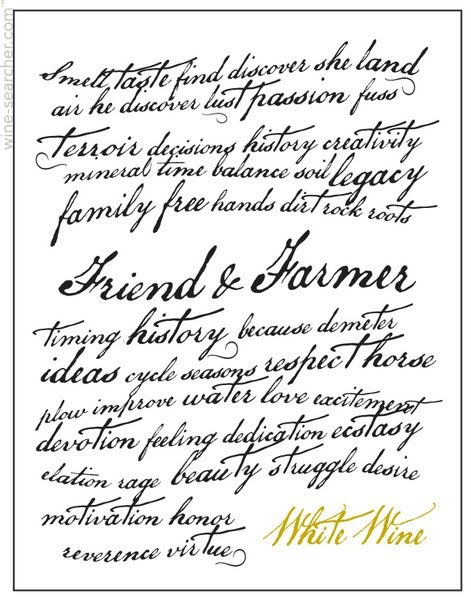 Smell taste find discover she land
air he discover lust passion fuss
Terroir decisions history creativity
mineral time balance soil legacy
family free hands dirt rock roots
Friend & Farmer
timing history because demeter
ideas cycle seasons respect horse
plow improve water love excitement
devotion feeling dedication ecstasy
elation rage beauty struggle desire
motivation honor
reverence virtue
White Wine
wine-searcher.com™